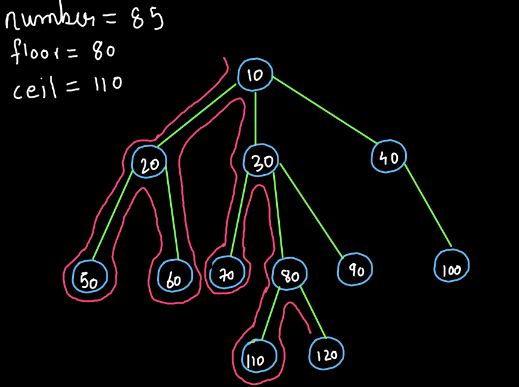 number = 85
floor = 80
ceil = 110
10
20
30
40
50
60
70
80
90
100
110
120